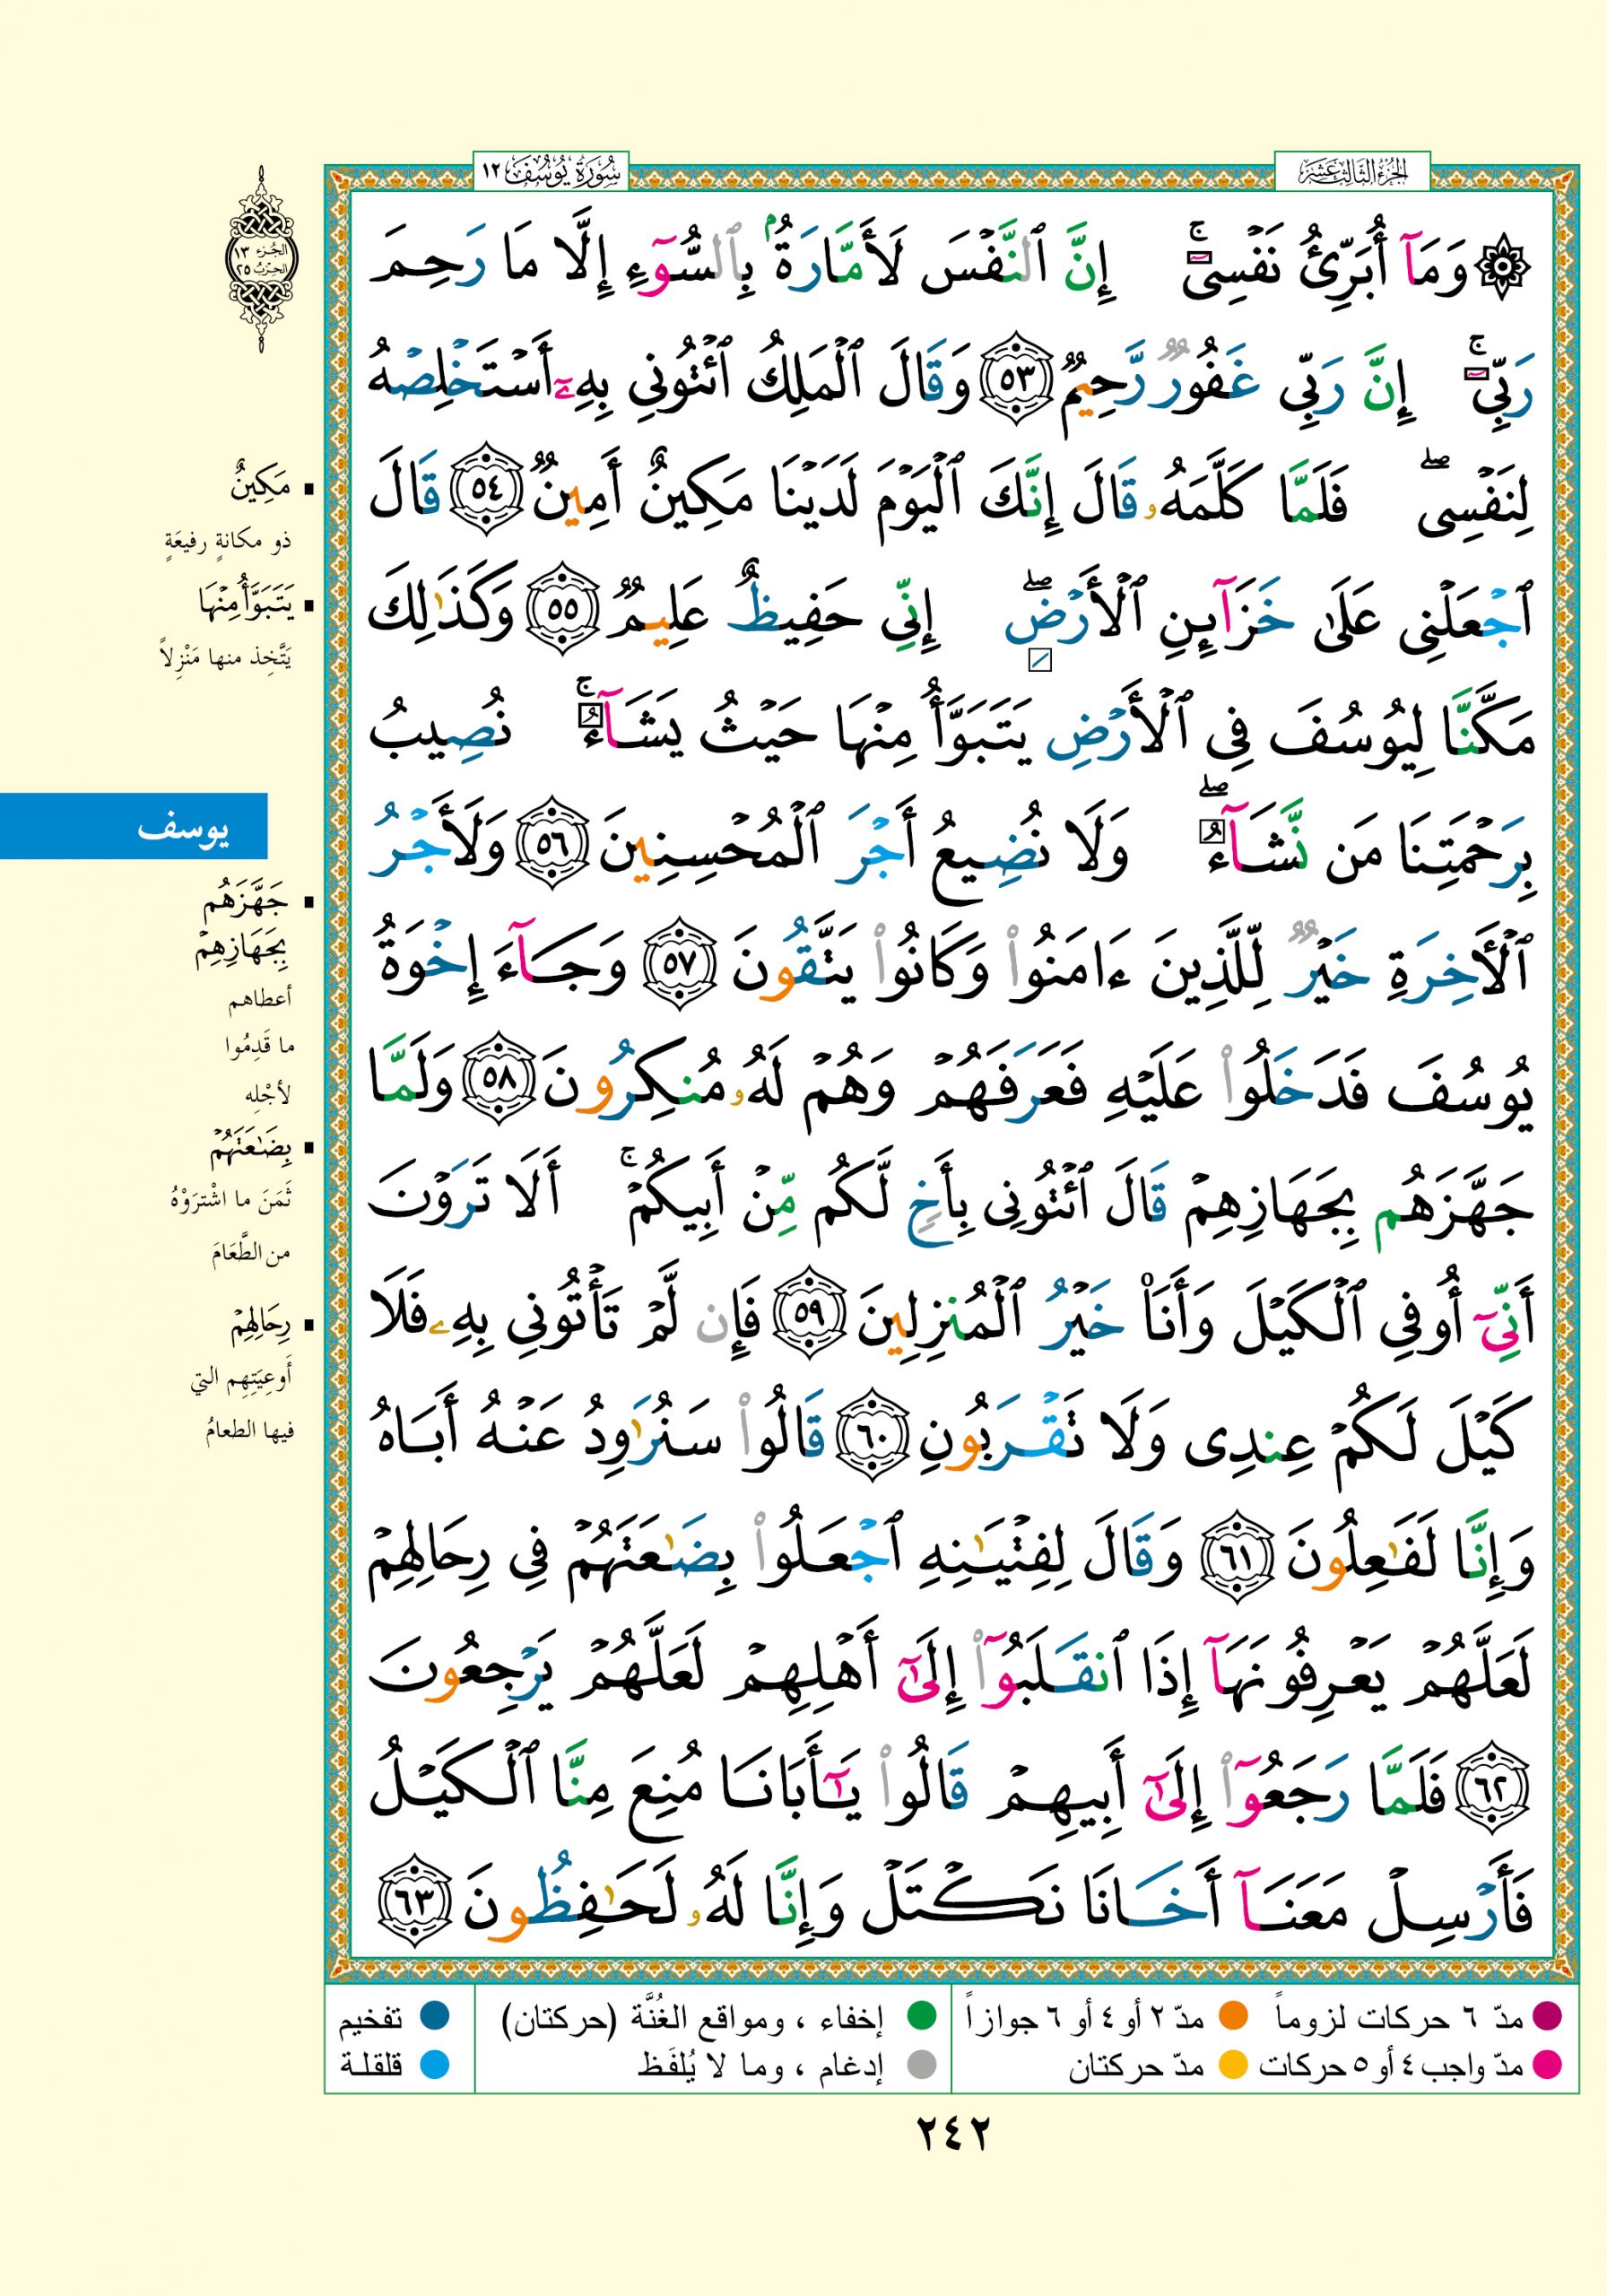 الجزء الثالث عشر
سورة يوسف ١٢
۞ وَمَآ أُبَرِّئُ نَفْسِىٓ ۚ إِنَّ ٱلنَّفْسَ لَأَمَّارَةٌۢ بِٱلسُّوٓءِ إِلَّا مَا رَحِمَ
رَبِّىٓ ۚ إِنَّ رَبِّى غَفُورٌ رَّحِيمٌ ٥٣ وَقَالَ ٱلْمَلِكُ ٱئْتُونِى بِهِۦٓ أَسْتَخْلِصْهُ
لِنَفْسِى ۖ فَلَمَّا كَلَّمَهُۥ قَالَ إِنَّكَ ٱلْيَوْمَ لَدَيْنَا مَكِينٌ أَمِينٌ ٥٤ قَالَ
ٱجْعَلْنِى عَلَىٰ خَزَآئِنِ ٱلْأَرْضِ ۖ إِنِّى حَفِيظٌ عَلِيمٌ ٥٥ وَكَذَٰلِكَ
مَكَّنَّا لِيُوسُفَ فِى ٱلْأَرْضِ يَتَبَوَّأُ مِنْهَا حَيْثُ يَشَآءُ ۚ نُصِيبُ
بِرَحْمَتِنَا مَن نَّشَآءُ ۖ وَلَا نُضِيعُ أَجْرَ ٱلْمُحْسِنِينَ ٥٦ وَلَأَجْرُ
ٱلْأَخِرَةِ خَيْرٌ لِّلَّذِينَ ءَامَنُوا۟ وَكَانُوا۟ يَتَّقُونَ ٥٧ وَجَآءَ إِخْوَةُ
يُوسُفَ فَدَخَلُوا۟ عَلَيْهِ فَعَرَفَهُمْ وَهُمْ لَهُۥ مُنكِرُونَ ٥٨ وَلَمَّا
جَهَّزَهُم بِجَهَازِهِمْ قَالَ ٱئْتُونِى بِأَخٍ لَّكُم مِّنْ أَبِيكُمْ ۚ أَلَا تَرَوْنَ
أَنِّىٓ أُوفِى ٱلْكَيْلَ وَأَنَا۠ خَيْرُ ٱلْمُنزِلِينَ ٥٩ فَإِن لَّمْ تَأْتُونِى بِهِۦ فَلَا
كَيْلَ لَكُمْ عِندِى وَلَا تَقْرَبُونِ ٦٠ قَالُوا۟ سَنُرَٰوِدُ عَنْهُ أَبَاهُ
وَإِنَّا لَفَٰعِلُونَ ٦١ وَقَالَ لِفِتْيَٰنِهِ ٱجْعَلُوا۟ بِضَٰعَتَهُمْ فِى رِحَالِهِمْ
لَعَلَّهُمْ يَعْرِفُونَهَآ إِذَا ٱنقَلَبُوٓا۟ إِلَىٰٓ أَهْلِهِمْ لَعَلَّهُمْ يَرْجِعُونَ
٦٢ فَلَمَّا رَجَعُوٓا۟ إِلَىٰٓ أَبِيهِمْ قَالُوا۟ يَٰٓأَبَانَا مُنِعَ مِنَّا ٱلْكَيْلُ
فَأَرْسِلْ مَعَنَآ أَخَانَا نَكْتَلْ وَإِنَّا لَهُۥ لَحَٰفِظُونَ ٦٣
الجزء ١٣
الحزب ٢٥
▪ مَكِينٌ
ذو مكانةٍ رفيعَةٍ
▪ يَتَبَوَّأُ مِنْهَا
يَتَّخِذ منها مَنْزِلاً
يوسف
▪ جَهَّزَهُم
بِجَهَازِهِمْ
أعطاهم
ما قَدِمُوا
لأجْلِه
▪ بِضَٰعَتَهُمْ
ثَمَنَ ما اشْترَوْهُ
من الطَّعَامَ
▪ رِحَالِهِمْ
أَوعِيَتِهِم التي
فيها الطعامُ
مدّ ٦ حركات لزوماً
مدّ ٢ أو ٤ أو ٦ جوازاً
إخفاء ، ومواقع الغُنَّة (حركتان)
تفخيم
مدّ واجب ٤ أو ٥ حركات
مدّ حركتان
إدغام ، وما لا يُلفَظ
قلقلة
٢٤٢